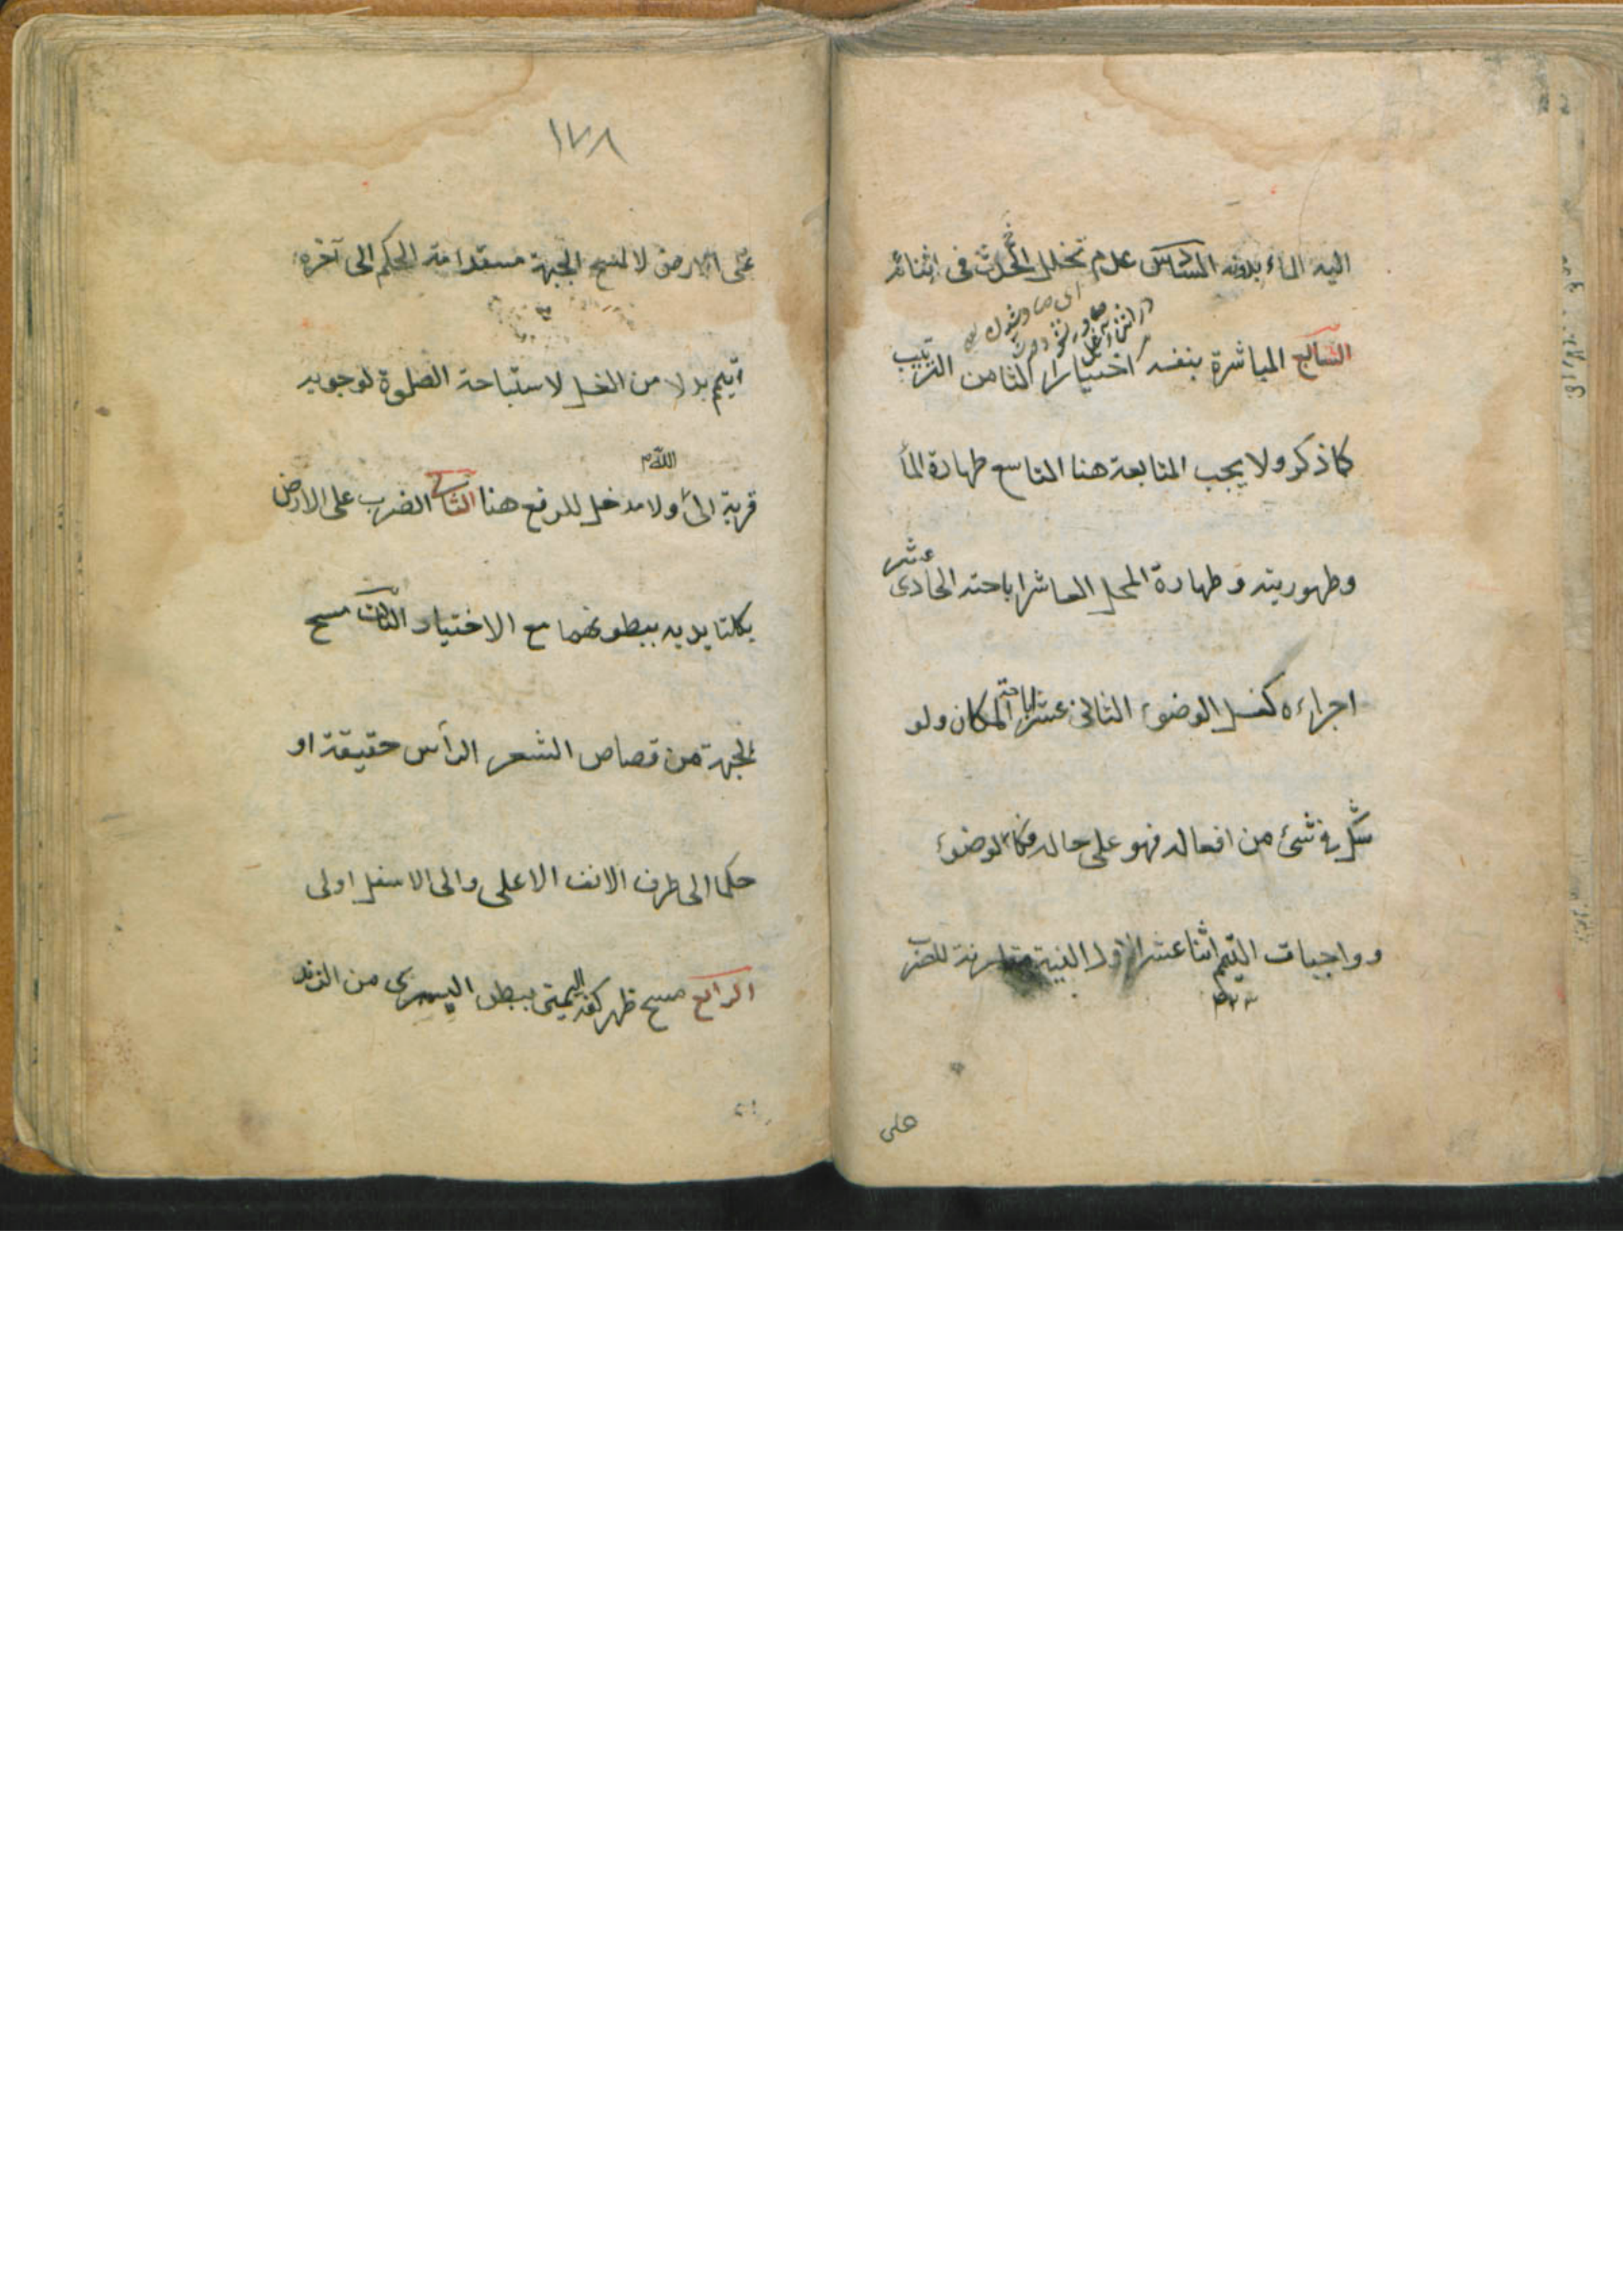 اليه الماء بدونه السادس عدم تخلل الحدث فى اثنائه
السابع المباشرة بنفسه اختيارا الثامن الترتيب
كما ذكر ولا يجب المتابعة هنا التاسع طهارة الماء
وطهوريته وطهارة المحل العاشر اباحته الحادى عشر
اجراءه كغسل الوضوء الثانى عشر اباحة المكان ولو
شك فى شئ من افعاله فهو على حاله فكالوضوء
وواجبات التيمم اثنا عشر الاول النية مقارنة للضرب
على
١٧٨
على الارض لا لمسح الجبهة مستدامة الحكم الى آخره
اتيمم بدلا من الغسل لاستباحة الصلوة لوجوبه
قربة الى الله ولا مدخل للرفع هنا الثانى الضرب على الارض
بكلتا يديه ببطونهما مع الاختيار الثالث مسح
الجبهة من قصاص الشعر الرأس حقيقة او
حكما الى طرف الانف الاعلى والى الاسفل اولى
الرابع مسح ظهر كفه اليمنى ببطن اليسرى من الزند